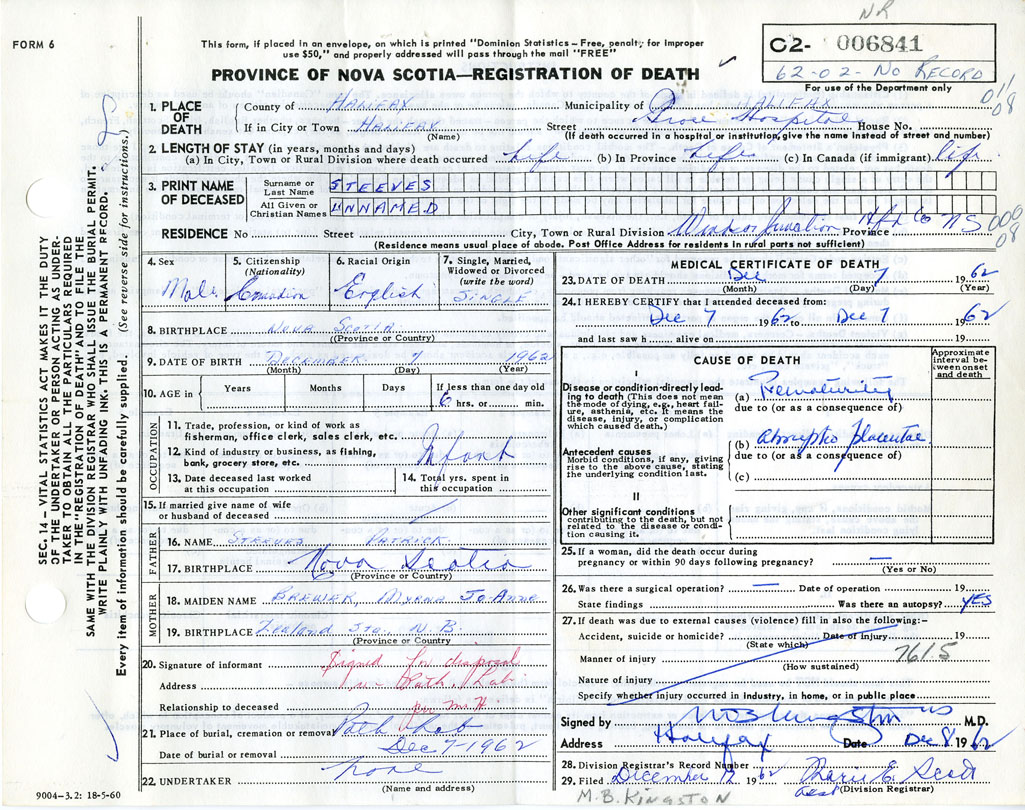 NR
FORM 6
This form, if placed in an envelope, on which is printed "Dominion Statistics – Free, penalty for improper
use $50," and properly addressed will pass through the mail "FREE"
PROVINCE OF NOVA SCOTIA—REGISTRATION OF DEATH
C2- 006841
62-02-No RECORD
For use of the Department only
01/08
1. PLACE OF DEATH
County of HALIFAX Municipality of HALIFAX
If in City or Town HALIFAX Street Grace Hospital House No.
(Name) (If death occurred in a hospital or institution, give the name instead of street and number)
2. LENGTH OF STAY (in years, months and days)
(a) In City, Town or Rural Division where death occurred Life (b) In Province Life (c) In Canada (if immigrant) life
3. PRINT NAME OF DECEASED
Surname or Last Name STEEVES
All Given or Christian Names UNNAMED
RESIDENCE No Street City, Town or Rural Division Windsor Junction Province Hfx Co NS 000/08
(Residence means usual place of abode. Post Office Address for residents in rural parts not sufficient)
4. Sex Male
5. Citizenship (Nationality) Canadian
6. Racial Origin English
7. Single, Married, Widowed or Divorced (write the word) SINGLE
8. BIRTHPLACE NOVA SCOTIA
((Province or Country)
9. DATE OF BIRTH DECEMBER 7 1962
(Month) (Day) (Year)
10. AGE in Years Months Days If less than one day old
6 hrs. or min.
OCCUPATION
11. Trade, profession, or kind of work as
fisherman, office clerk, sales clerk, etc.
12. Kind of industry or business, as fishing,
bank, grocery store, etc. Infant
13. Date deceased last worked
at this occupation
14. Total yrs. spent in
this occupation
15. If married give name of wife
or husband of deceased
FATHER
16. NAME STEEVES PATRICK
17. BIRTHPLACE Nova Scotia
(Province or Country)
MOTHER
18. MAIDEN NAME BREWER, MYRNA JO-ANNE
19. BIRTHPLACE Zealand Sta., N.B.
(Province or Country)
20. Signature of informant Signed for disposal
Address in Path. Lab
Relationship to deceased per M.H.
21. Place of burial, cremation or removal Path Lab
Date of burial or removal Dec 7-1962
22. UNDERTAKER none
(Name and address)
9004-3.2: 18-5-60
MEDICAL CERTIFICATE OF DEATH
23. DATE OF DEATH Dec 7 1962
(Month) (Day) (Year)
24. I HEREBY CERTIFY that I attended deceased from:
Dec 7 1962 to Dec 7 1962
and last saw h alive on 19
CAUSE OF DEATH
Approximate interval between onset and death
I
Disease or condition directly leading to death (This does not mean the mode of dying, e.g., heart failure, asthenia, etc. It means the disease, injury, or complication which caused death.)
(a) Prematurity
due to (or as a consequence of)
Antecedent causes
Morbid conditions, if any, giving rise to the above cause, stating the underlying condition last.
(b) abruptio placentae
due to (or as a consequence of)
(c)
II
Other significant conditions
contributing to the death, but not related to the disease or condition causing it.
25. If a woman, did the death occur during
pregnancy or within 90 days following pregnancy? —
(Yes or No)
26. Was there a surgical operation? — Date of operation 19
State findings Was there an autopsy? YES
27. If death was due to external causes (violence) fill in also the following:-
Accident, suicide or homicide? Date of injury 19
(State which)
Manner of injury 761.5
(How sustained)
Nature of injury
Specify whether injury occurred in industry, in home, or in public place
Signed by M.D.
Address Halifax Date Dec 8 1962
28. Division Registrar's Record Number
29. Filed December 12 1962 Marie E. Scott
asst (Division Registrar)
M.B. KINGSTON
SEC. 14 – VITAL STATISTICS ACT MAKES IT THE DUTY
OF THE UNDERTAKER OR PERSON ACTING AS UNDER-
TAKER TO OBTAIN ALL THE PARTICULARS REQUIRED
IN THE "REGISTRATION OF DEATH" AND TO FILE THE
SAME WITH THE DIVISION REGISTRAR WHO SHALL ISSUE THE BURIAL PERMIT.
WRITE PLAINLY WITH UNFADING INK. THIS IS A PERMANENT RECORD.
Every item of information should be carefully supplied. (See reverse side for instructions.)